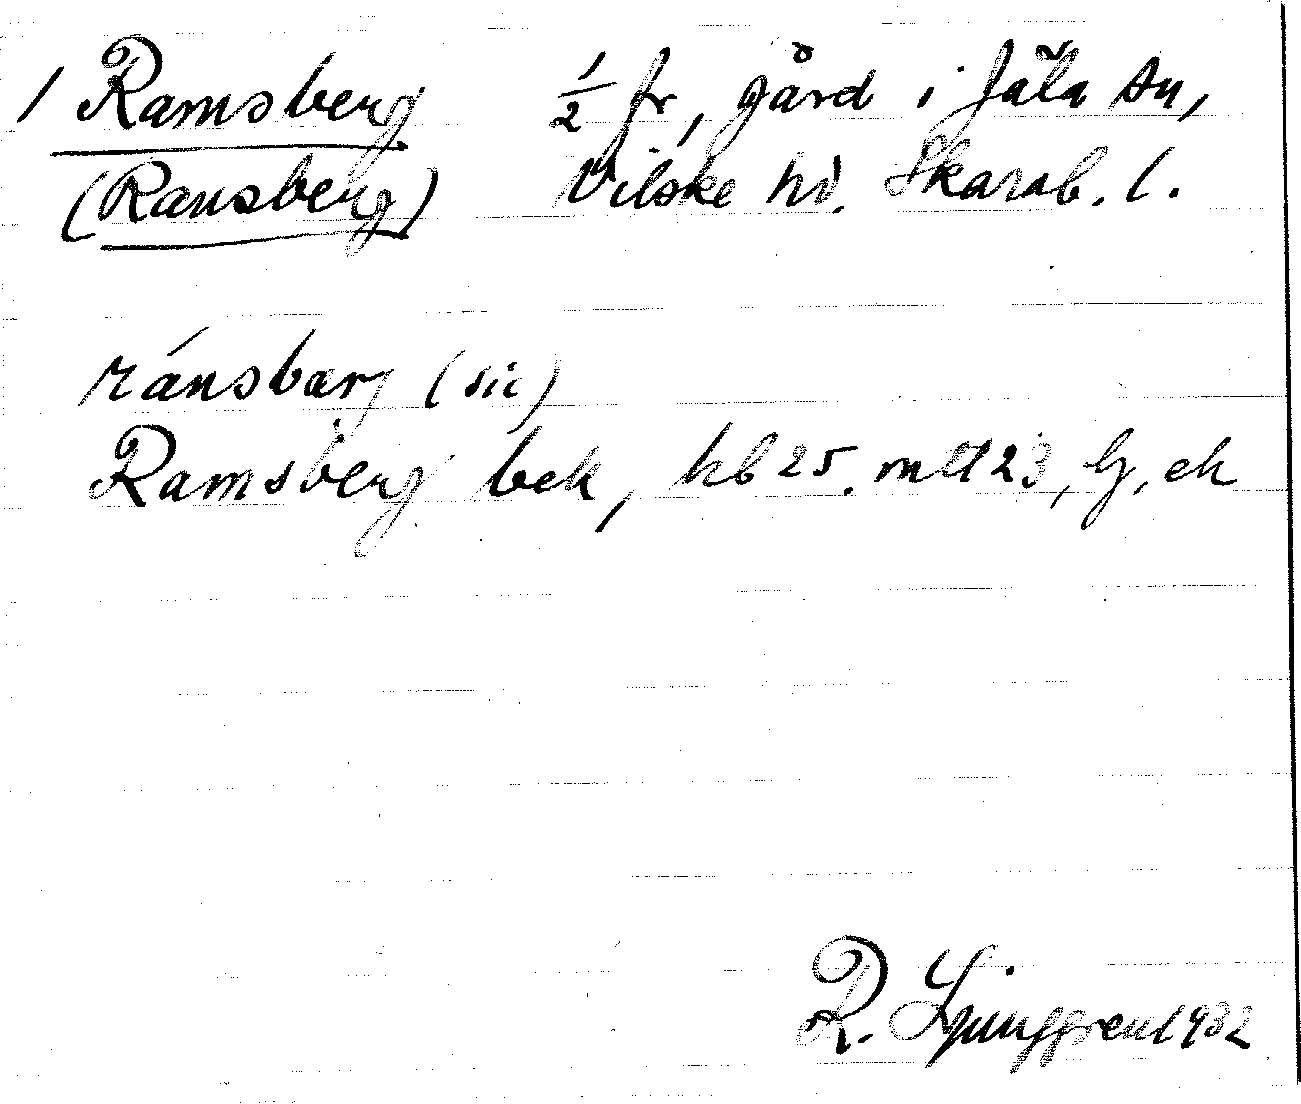 1 Ramsberg 1/2 fr, gård i Jäla sn,
(Ransberg) Vilske hd. Skarab. l.
ránsbærj (sic)
Ramsberg bek, hb 25. mtl 23, lj, ek
R. Ljunggren 1932